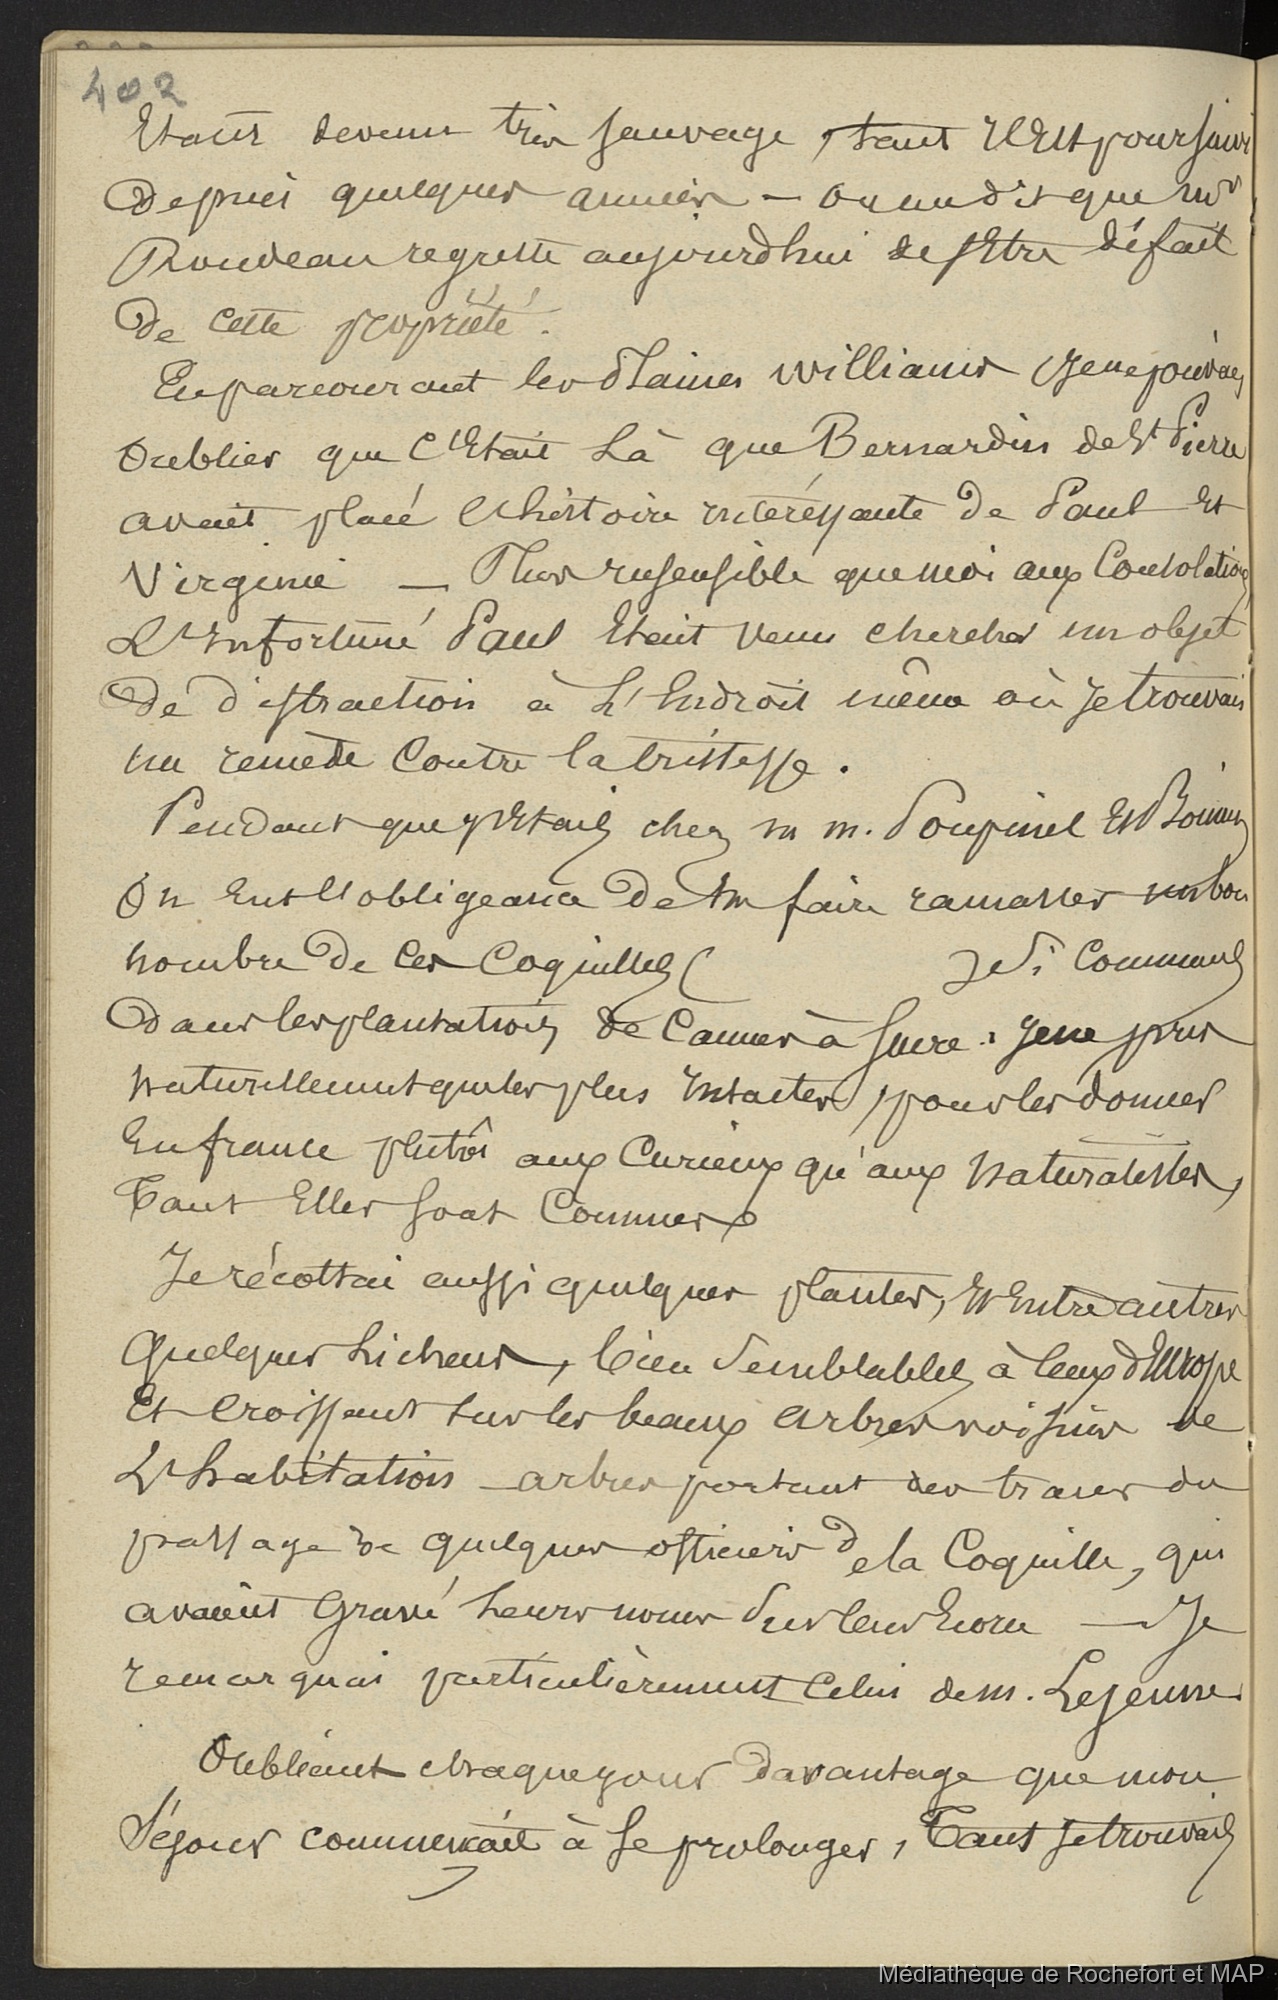 402
Etant devenu très sauvage, tant il est poursuivi
depuis quelques années – on me dit que Mr
Rondeau regrette aujourdhui de s'être défait
de cette propriété.
En parcourant les Plaines Williams je ne pouvais
oublier que c'Etait Là que Bernardin de St Pierre
avait placé l'histoire intéressante de Paul et
Virginie — Plus insensible que moi aux Consolations
L'infortuné Paul Etait venu chercher un objet
De distraction à L'Endroit même où je trouvais
un remède Contre la tristesse.
Pendant que j'Etais chez M M. Poupinel Et
On Eut l'obligeance De me faire ramasser un bon
nombre De Ces Coquilles ( ) si Communes
dans les plantations de Cannes à Sucre : je ne pris
naturellement que les plus intactes, pour les donner
En france plutôt aux Curieux qu'aux Naturalistes,
Tant Elles sont Connues.
Je récoltai aussi quelques plantes, Et Entre autres
Quelques Lichens, bien Semblables à Ceux d'Europe
Et Croissant sur les beaux arbres voisins de
L'habitation – arbres portant des traces du
passage de quelques officiers de la Coquille, qui
avaient Gravé Leurs noms Sur leur Ecorce — Je
remarquai particulièrement Celui de M. Lejeune.
Oubliant chaque jour Davantage que mon
Séjour commençait à se prolonger, Tant je trouvais
Médiathèque de Rochefort et MAP